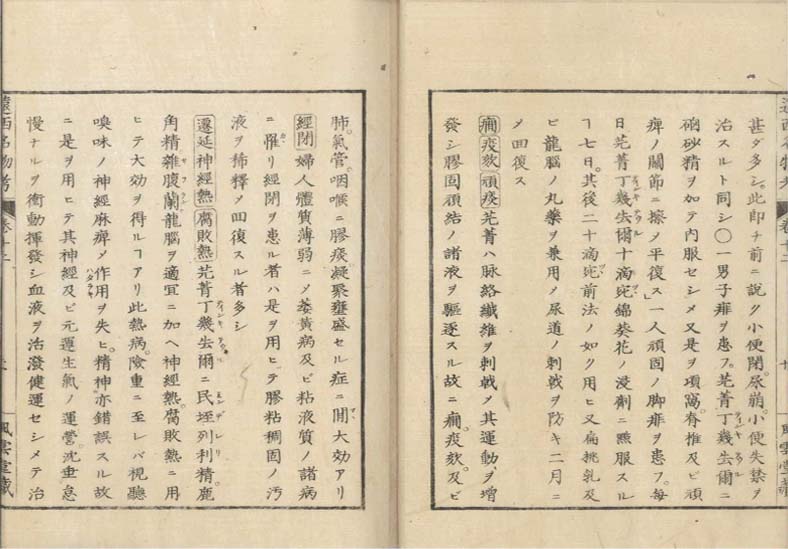 甚ダ多シ。此即チ前ニ説ク小便閉。尿崩。小便失禁ヲ
治スルト同シ〇一男子痱ヲ患フ。芫菁丁幾去爾ニ
硇砂精ヲ加テ内服セシメ又是ヲ項窩。脊椎及ビ頑
痺ノ關節ニ擦メ平復ス」一人頑固ノ脚痱ヲ患フ。毎
日芫菁丁幾去爾十滴兊錦葵花ノ浸劑ニ𤋱服スル
ヿ七日。其後二十滴兊前法ノ如ク用ヒ又扁桃乳及
ビ龍腦ノ丸藥ヲ兼用メ尿道ノ刺戟ヲ防キ二月ニ
メ回復ス
癇疫欬 頑痰 芫菁ハ脉絡纖維ヲ刺戟メ其運動ヲ増
發シ膠固頑結ノ諸液ヲ驅逐スル故ニ癇。疫欬。及ビ
遠西名物考 卷十二 風雲堂藏
肺。氣管。咽喉ニ膠痰凝聚壅盛セル症ニ間大効アリ
經閉 婦人體質薄弱ニメ萎黄病及ビ粘液質ノ諸病
ニ罹リ經閉ヲ患ル者ハ是ヲ用ヒテ膠粘稠固ノ汚
液ヲ稀釋メ回復スル者多シ
遷延神經熱 腐敗熱 芫菁丁幾去爾ニ民垤列利精。鹿
角精雜腹蘭龍腦ヲ適宜ニ加ヘ神經熱。腐敗熱ニ用
ヒテ大効ヲ得ルヿアリ此熱病。險重ニ至レバ視聽
嗅味ノ神經麻痺メ作用ヲ失ヒ。精神亦錯誤スル故
ニ是ヲ用ヒテ其神經及ビ元運生氣ノ運營。沈重怠
慢ナルヲ衝動揮發シ血液ヲ活潑健運セシメテ治